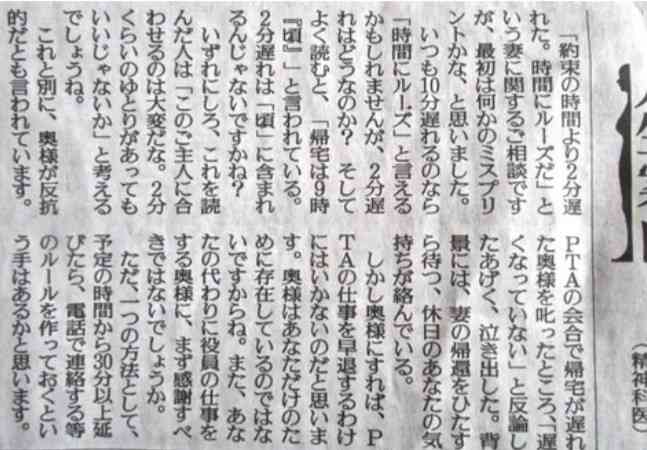 「約束の時間より2分遅
れた。時間にルーズだ」と
いう妻に関するご相談です
が、最初は何かのミスプリ
ントかな、と思いました。
いつも10分遅れるのなら
「時間にルーズ」と言える
かもしれませんが、2分遅
れはどうなのか?　そして
よく読むと、「帰宅は9時
『頃』」と言われている。
2分遅れは「頃」に含まれ
るんじゃないですかね?
いずれにしろ、これを読
んだ人は「このご主人に合
わせるのは大変だな。2分
くらいのゆとりがあっても
いいじゃないか」と考える
でしょうね。
これと別に、奥様が反抗
的だとも言われています。
PTAの会合で帰宅が遅れ
た奥様を叱ったところ、「遅
くなっていない」と反論し
たあげく、泣き出した。背
景には、妻の帰還をひたす
ら待つ、休日のあなたの気
持ちが絡んでいる。
しかし奥様にすれば、P
TAの仕事を早退するわけ
にはいかないのだと思いま
す。奥様はあなただけのた
めに存在しているのではな
いですからね。また、あな
たの代わりに役員の仕事を
する奥様に、まず感謝すべ
きではないでしょうか。
ただ、一つの方法として、
予定の時間から30分以上延
びたら、電話で連絡する等
のルールを作っておくとい
う手はあるかと思います。
(精神科医)